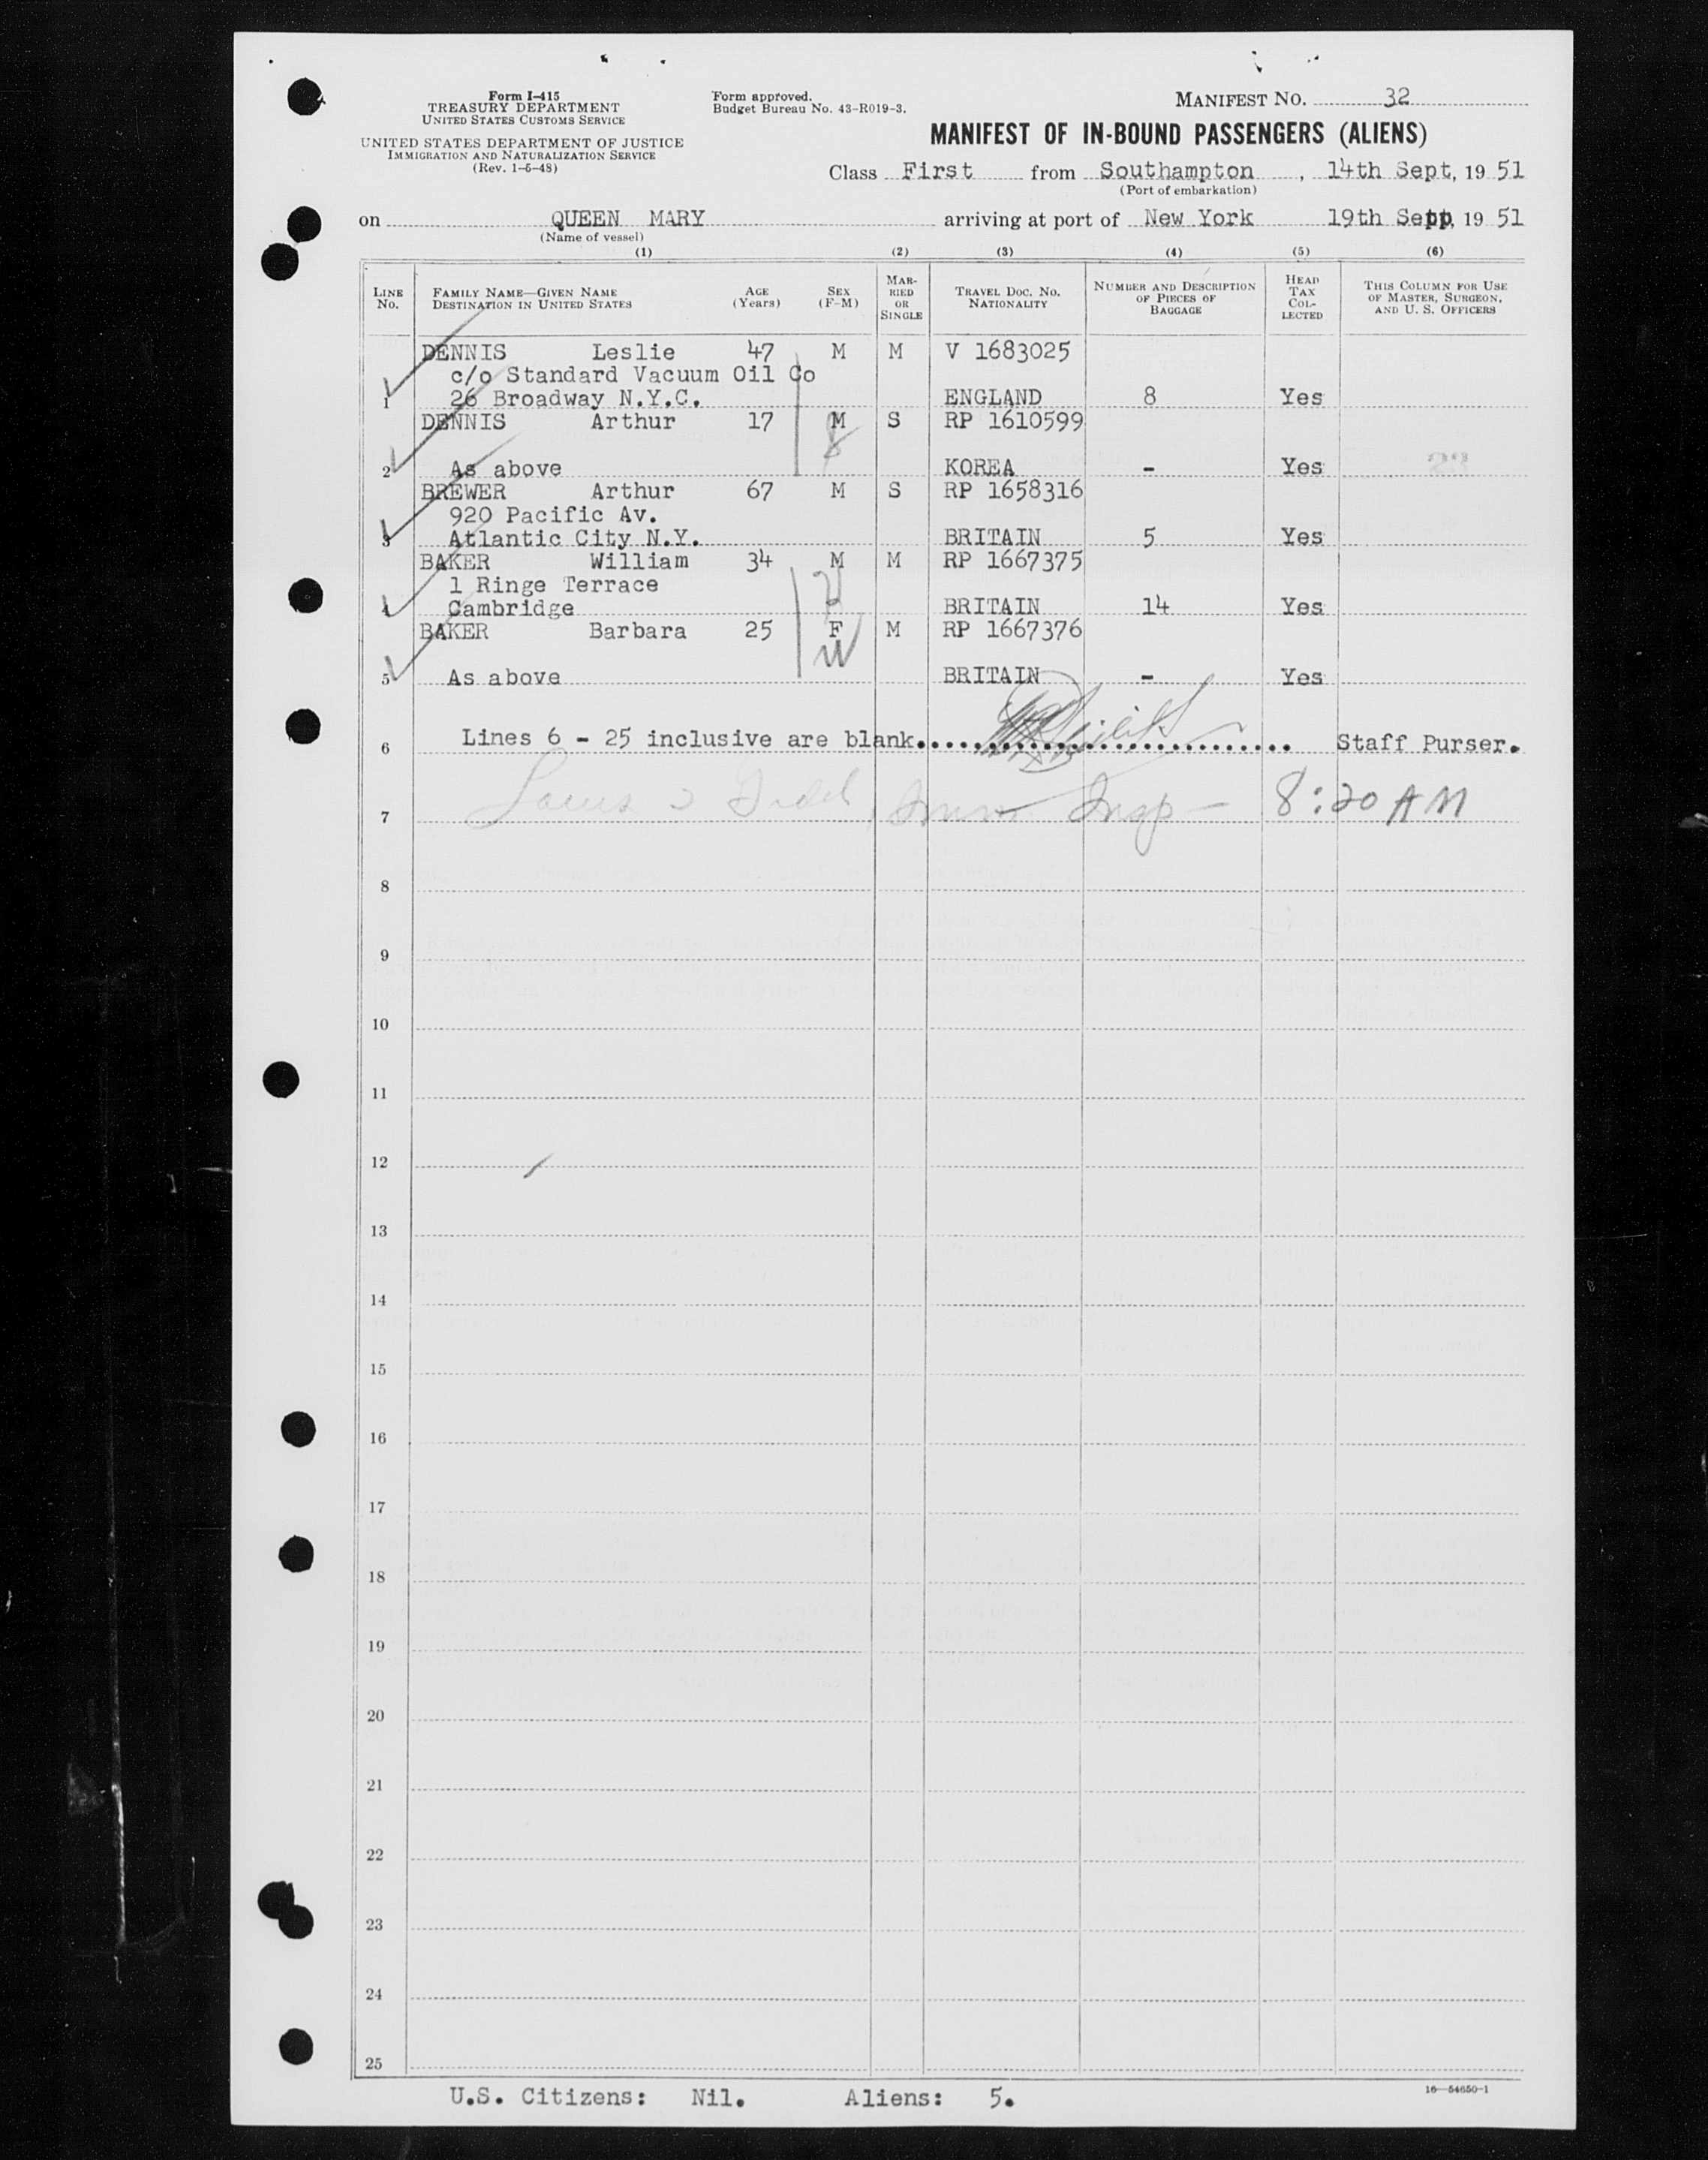 Form I-415
TREASURY DEPARTMENT
UNITED STATES CUSTOMS SERVICE
UNITED STATES DEPARTMENT OF JUSTICE
IMMIGRATION AND NATURALIZATION SERVICE
(Rev. 1-5-48)
Form approved.
Budget Bureau No. 43-R019-3.
MANIFEST NO. 32
MANIFEST OF IN-BOUND PASSENGERS (ALIENS)
Class First from Southampton, 14th Sept, 19 51
(Port of embarkation)
on QUEEN MARY arriving at port of New York 19th Sept, 19 51
(Name of vessel)
(1) (2) (3) (4) (5) (6)
LINE NO. FAMILY NAME—GIVEN NAME DESTINATION IN UNITED STATES AGE (Years) SEX (F-M) MARRIED OR SINGLE TRAVEL DOC. NO. NATIONALITY NUMBER AND DESCRIPTION OF PIECES OF BAGGAGE HEAD TAX COLLECTED THIS COLUMN FOR USE OF MASTER, SURGEON, AND U. S. OFFICERS
DENNIS Leslie 47 M M V 1683025
c/o Standard Vacuum Oil Co
1 26 Broadway N.Y.C. ENGLAND 8 Yes
DENNIS Arthur 17 M S RP 1610599
2 As above KOREA - Yes
BREWER Arthur 67 M S RP 1658316
920 Pacific Av.
3 Atlantic City N.Y. BRITAIN 5 Yes
BAKER William 34 M M RP 1667375
1 Ringe Terrace
4 Cambridge BRITAIN 14 Yes
BAKER Barbara 25 F M RP 1667376
W
5 As above BRITAIN - Yes
6 Lines 6 - 25 inclusive are blank. Staff Purser.
7 Imm Insp - 8:20 AM
8
9
10
11
12
13
14
15
16
17
18
19
20
21
22
23
24
25
U.S. Citizens: Nil. Aliens: 5.
16—54650-1